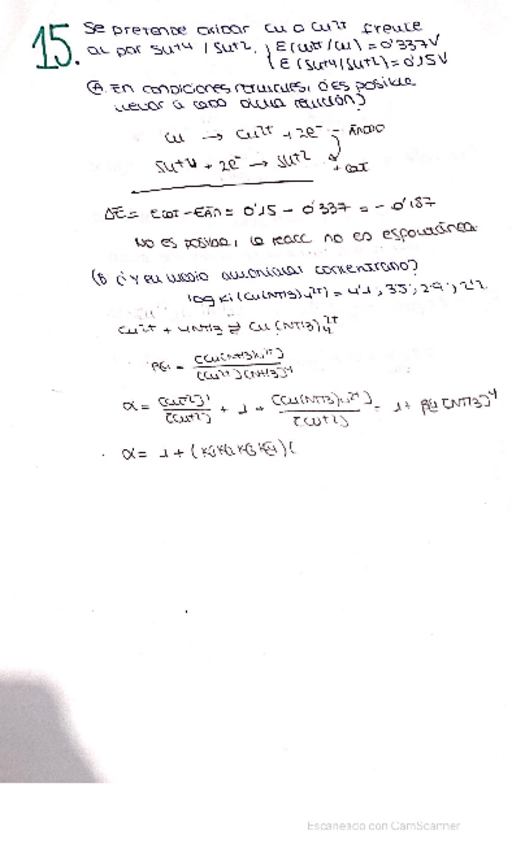 15. Se pretende oxidar Cu a Cu2+ frente
al par Sn+4 / Sn+2. { E(Cu2+/Cu) = 0'337V
{ E(Sn+4/Sn+2) = 0'15V
(A. En condiciones normales, ¿es posible
llevar a cabo dicha reacción?
Cu → Cu2+ + 2e- - ÁNODO
Sn+4 + 2e- → Sn+2 + CAT
ΔE = ECAT - EÁN = 0'15 - 0'337 = - 0'187
No es posible, la reacc no es espontánea
(B ¿Y en medio amoniacal concentrado?
log Ki (Cu(NH3)4 2+) = 4'1, 3'5, 2'9, 2'2
Cu2+ + 4NH3 ⇌ Cu(NH3)4 2+
β4 = [Cu(NH3)4 2+] / [Cu2+][NH3]4
α = [Cu+2]' / [Cu+2] + 1 + [Cu(NH3)4 2+] / [Cu+2] = 1 + β4 [NH3]4
α = 1 + (K1 K2 K3 K4) (
Escaneado con CamScanner